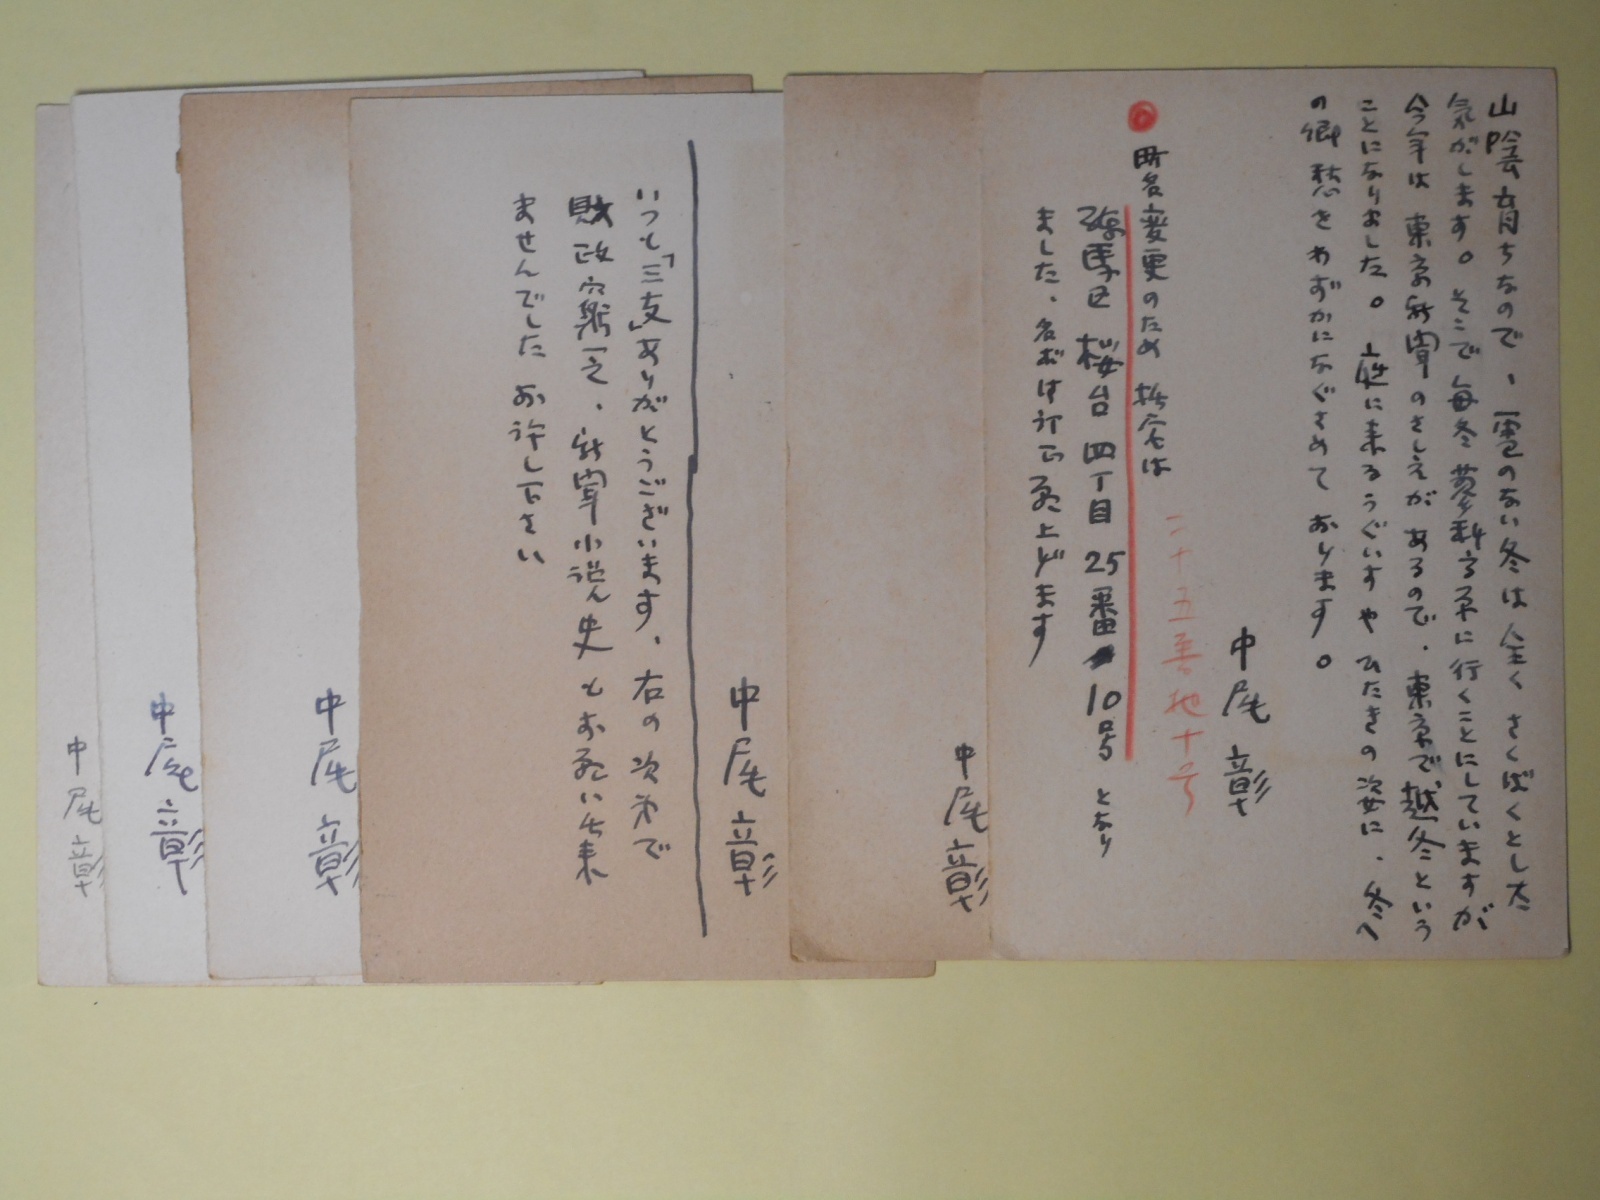 山陰育ちなので、雪のない冬は全くさくばくとした
気がします。そこで毎冬蓼科高原に行くことにしていますが
今年は東京新聞のさしえがあるので、東京で越冬という
ことになりました。庭に来るうぐいすやひたきの姿に、冬へ
の郷愁をわずかになぐさめております。
中尾彰
二十五番地十号
町名変更のため拙宅は
練馬区桜台四丁目25番10号となり
ました、名ボは訂正願上げます
中尾彰
中尾彰
いつも「三支」ありがとうございます、右の次第で
財政窮乏、新聞小説史もお願い出来
ませんでした お許し下さい
中尾彰
中尾彰
中尾彰